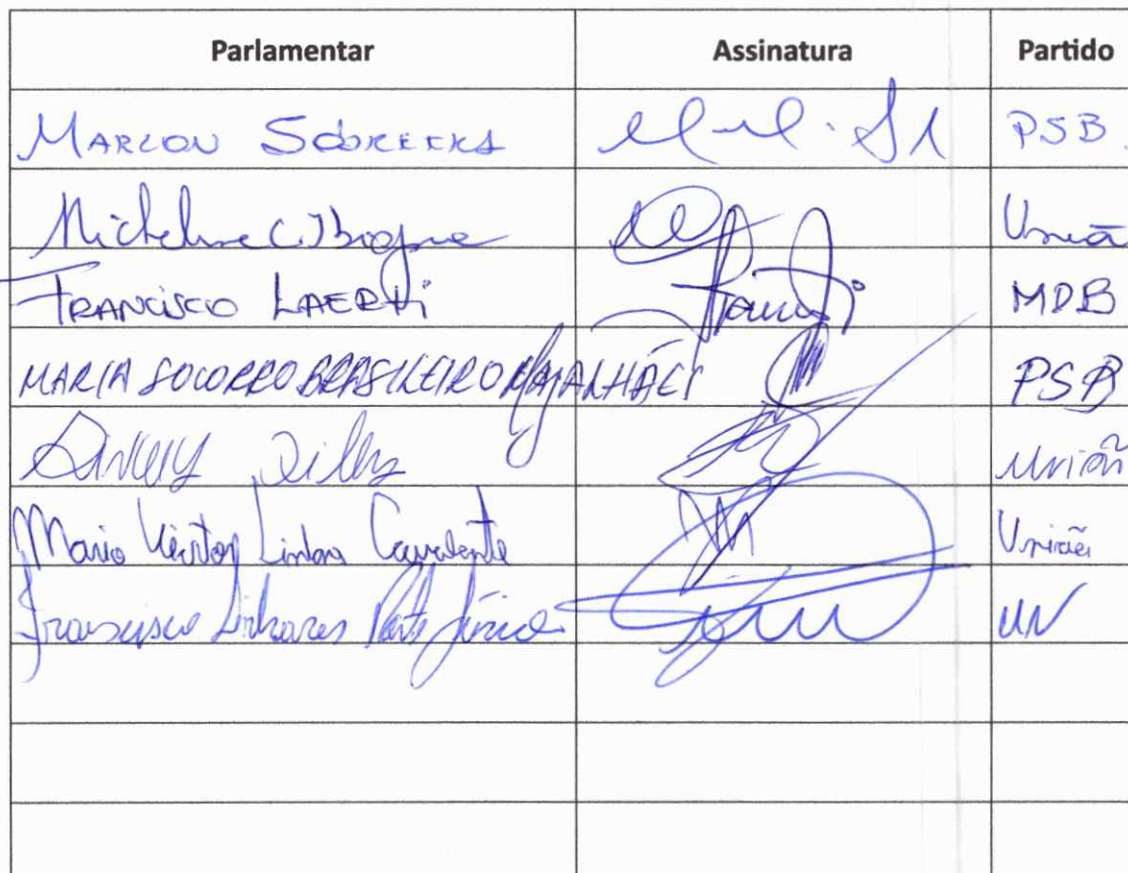 Parlamentar Assinatura Partido
MARLON SOBREIRA PSB
Micheline União
FRANCISCO LAERTI MDB
MARIA SOCORRO BRASILEIRO MAGALHÃES PSB
União
Mario Linhares Cavalcante União
Francisco Linhares Ponte Júnior UN